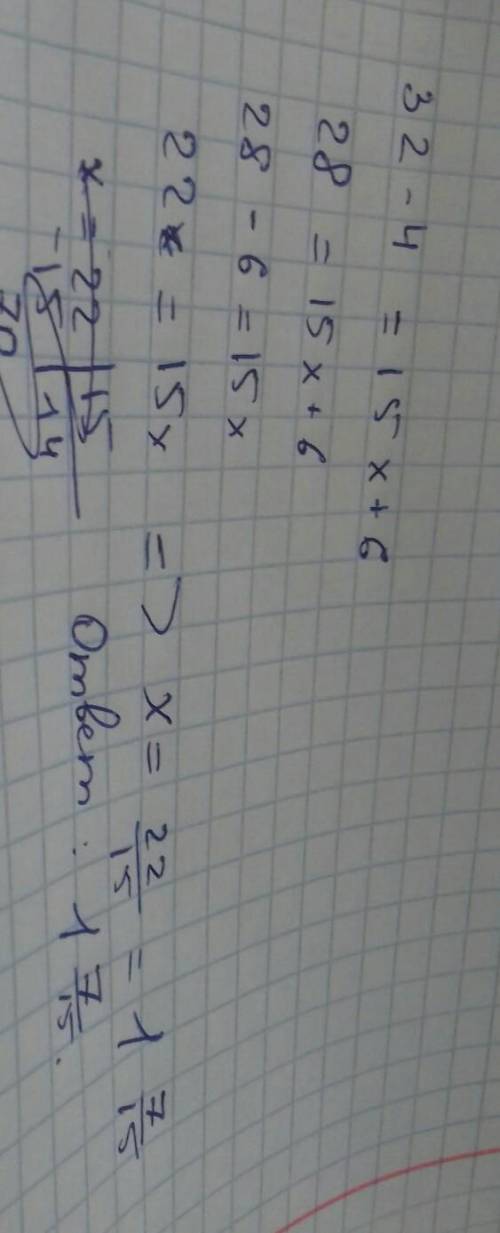 32 - 4 = 15x + 6
28 = 15x + 6
28 - 6 = 15x
22 = 15x => x = 22/15 = 1 7/15
x = 22 | 15
- 15 | 14
70
Ответ: 1 7/15.